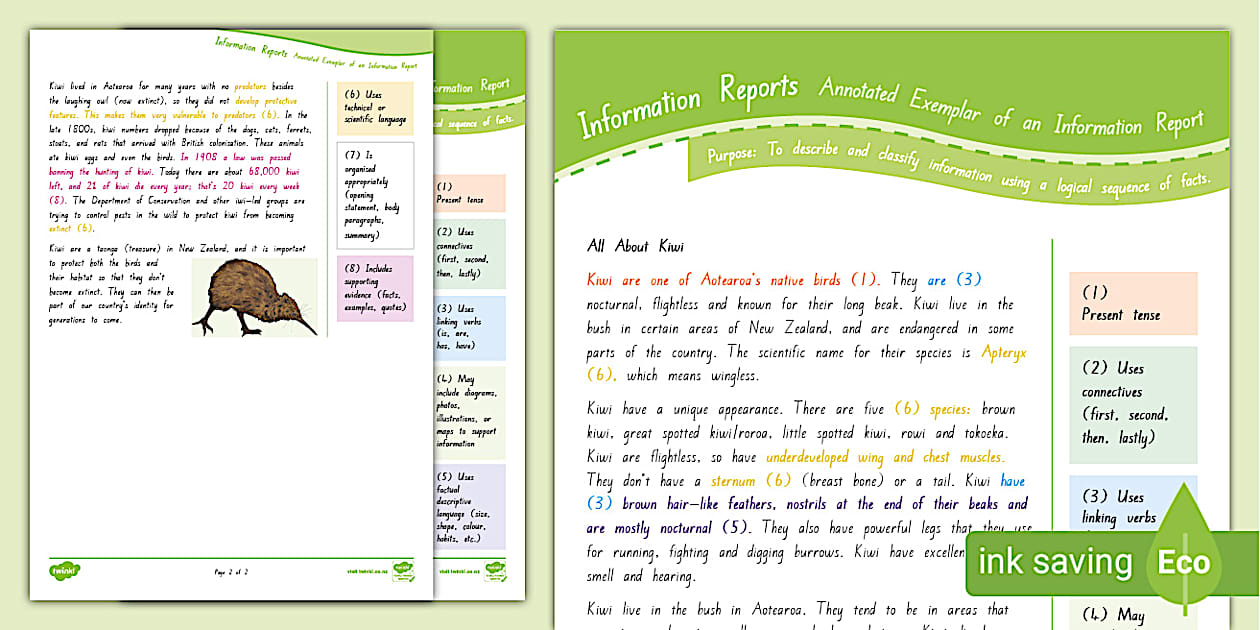 Information Reports Annotated Exemplar of an Information Report
Kiwi lived in Aotearoa for many years with no predators besides
the laughing owl (now extinct), so they did not develop protective
features. This makes them very vulnerable to predators (6). In the
late 1800s, kiwi numbers dropped because of the dogs, cats, ferrets,
stoats, and rats that arrived with British colonisation. These animals
ate kiwi eggs and even the birds. In 1908 a law was passed
banning the hunting of kiwi. Today there are about 68,000 kiwi
left, and 2% of kiwi die every year; that's 20 kiwi every week
(8). The Department of Conservation and other iwi-led groups are
trying to control pests in the wild to protect kiwi from becoming
extinct (6).
Kiwi are a taonga (treasure) in New Zealand, and it is important
to protect both the birds and
their habitat so that they don't
become extinct. They can then be
part of our country's identity for
generations to come.
(6) Uses
technical or
scientific language
(7) Is
organised
appropriately
(opening
statement, body
paragraphs,
summary)
(8) Includes
supporting
evidence (facts,
examples, quotes)
twinkl
Page 2 of 2
visit twinkl.co.nz
ormation Report
cal sequence of facts.
(1)
Present tense
(2) Uses
connectives
(first, second,
then, lastly)
(3) Uses
linking verbs
(is, are,
has, have)
(4) May
include diagrams,
photos,
illustrations, or
maps to support
information
(5) Uses
factual
descriptive
language (size,
shape, colour,
habits, etc.)
visit twinkl.co.nz
Information Reports Annotated Exemplar of an Information Report
Purpose: To describe and classify information using a logical sequence of facts.
All About Kiwi
Kiwi are one of Aotearoa's native birds (1). They are (3)
nocturnal, flightless and known for their long beak. Kiwi live in the
bush in certain areas of New Zealand, and are endangered in some
parts of the country. The scientific name for their species is Apteryx
(6), which means wingless.
Kiwi have a unique appearance. There are five (6) species: brown
kiwi, great spotted kiwi/roroa, little spotted kiwi, rowi and tokoeka.
Kiwi are flightless, so have underdeveloped wing and chest muscles.
They don't have a sternum (6) (breast bone) or a tail. Kiwi have
(3) brown hair-like feathers, nostrils at the end of their beaks and
are mostly nocturnal (5). They also have powerful legs that they use
for running, fighting and digging burrows. Kiwi have excellen
smell and hearing.
Kiwi live in the bush in Aotearoa. They tend to be in areas that
(1)
Present tense
(2) Uses
connectives
(first, second,
then, lastly)
(3) Uses
linking verbs
(4) May
ink saving Eco